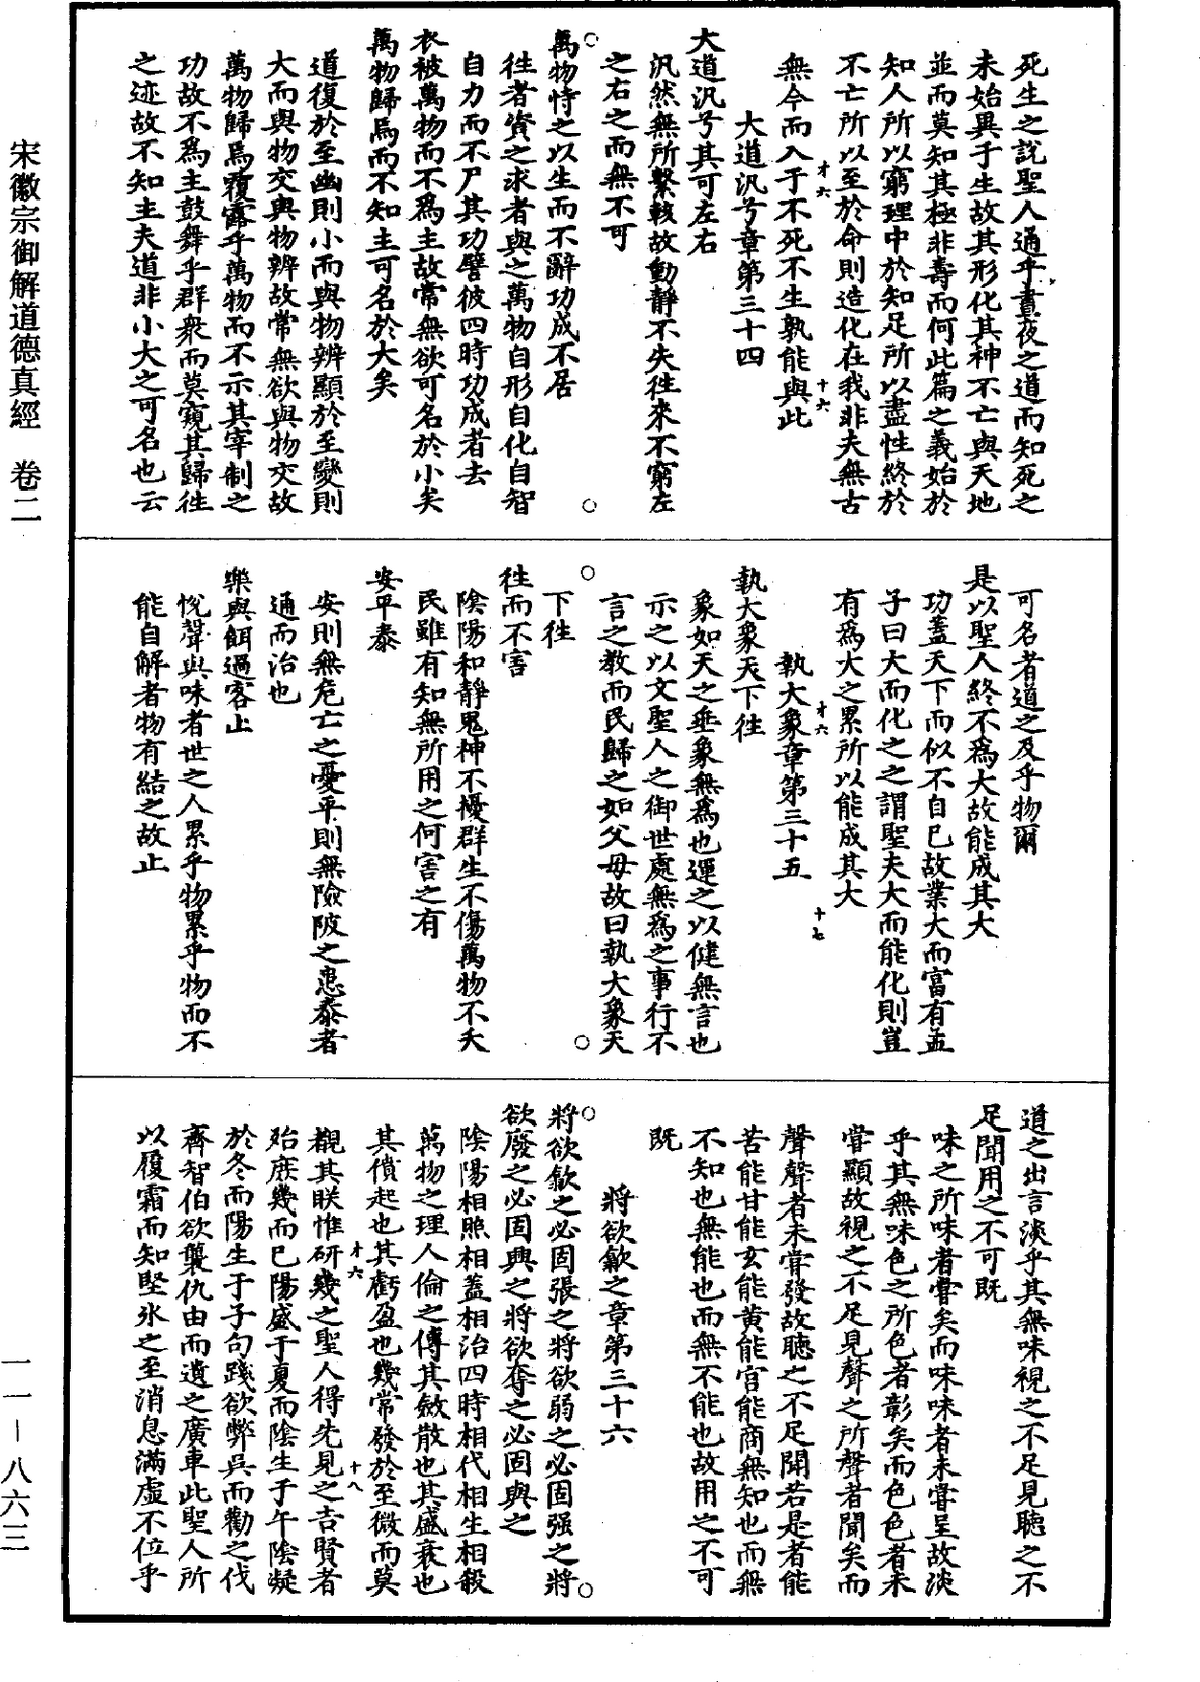 死生之說聖人通乎晝夜之道而知死之
未始異于生故其形化其神不亡與天地
並而莫知其極非壽而何此篇之義始於
知人所以窮理中於知足所以盡性終於
不亡所以至於命則造化在我非夫無古
才六 十六
無今而入于不死不生孰能與此
大道汎兮章第三十四
大道汎兮其可左右
汎然無所繫輆故動靜不失徃來不窮左
之右之而無不可
萬物恃之以生而不辭功成不居
徃者資之求者與之萬物自形自化自智
自力而不尸其功譬彼四時功成者去
衣被萬物而不為主故常無欲可名於小矣
萬物歸焉而不知主可名於大矣
道復於至幽則小而與物辨顯於至變則
大而與物交與物辨故常無欲與物交故
萬物歸焉覆露乎萬物而不示其宰制之
功故不為主鼓舞乎群衆而莫窺其歸徃
之迹故不知主夫道非小大之可名也云
可名者道之及乎物爾
是以聖人終不為大故能成其大
功蓋天下而似不自已故業大而富有孟
子曰大而化之之謂聖夫大而能化則豈
有為大之累所以能成其大
才六 十七
執大象章第三十五
執大象天下徃
象如天之垂象無為也運之以健無言也
示之以文聖人之御世處無為之事行不
言之教而民歸之如父母故曰執大象天
下徃
徃而不害
陰陽和靜鬼神不擾群生不傷萬物不夭
民雖有知無所用之何害之有
安平泰
安則無危亡之憂平則無險陂之患泰者
通而治也
樂與餌過客止
悅聲與味者世之人累乎物累乎物而不
能自解者物有結之故止
道之出言淡乎其無味視之不足見聽之不
足聞用之不可既
味之所味者嘗矣而味味者未嘗呈故淡
乎其無味色之所色者彰矣而色色者未
嘗顯故視之不足見聲之所聲者聞矣而
聲聲者未嘗發故聽之不足聞若是者能
苦能甘能玄能黃能宮能商無知也而無
不知也無能也而無不能也故用之不可
既
將欲歙之章第三十六
將欲歙之必固張之將欲弱之必固强之將
欲廢之必固興之將欲奪之必固與之
陰陽相照相蓋相治四時相代相生相殺
萬物之理人倫之傳其斂散也其盛衰也
其僨起也其虧盈也幾常發於至微而莫
才六 十八
覩其眹惟研幾之聖人得先見之吉賢者
殆庶幾而已陽盛于夏而陰生于午陰凝
於冬而陽生于子句踐欲弊吳而勸之伐
齊智伯欲襲仇由而遺之廣車此聖人所
以履霜而知堅氷之至消息滿虛不位乎
宋徽宗御解道德真經 卷二
一一－八六三